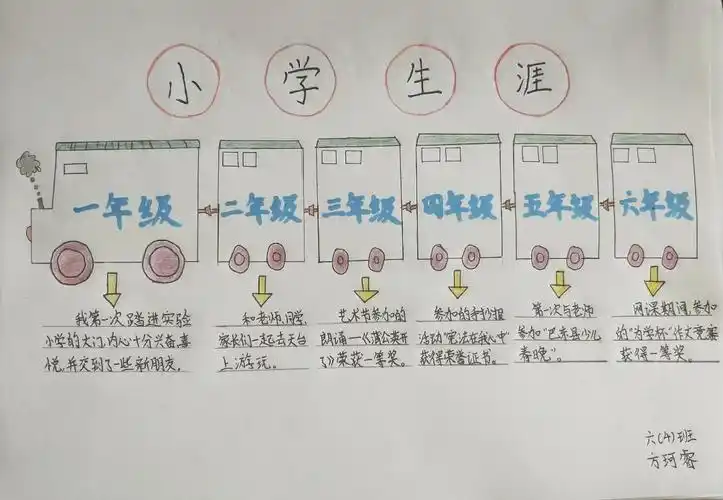 小学生涯
一年级
二年级
三年级
四年级
五年级
六年级
我第一次踏进实验
小学的大门,内心十分兴奋,喜
悦,并交到了一些新朋友。
和老师,同学,
家长们一起去天台
上游玩。
艺术节参加的
朗诵一《蒲公英开
了》荣获一等奖。
参加的手抄报
活动"宪法在我心中"
获得荣誉证书。
第一次与老师
参加"巴东县少儿
春晚"。
网课期间,参加
的"为学杯"作文竞赛
获得一等奖。
六(4)班
方珂睿